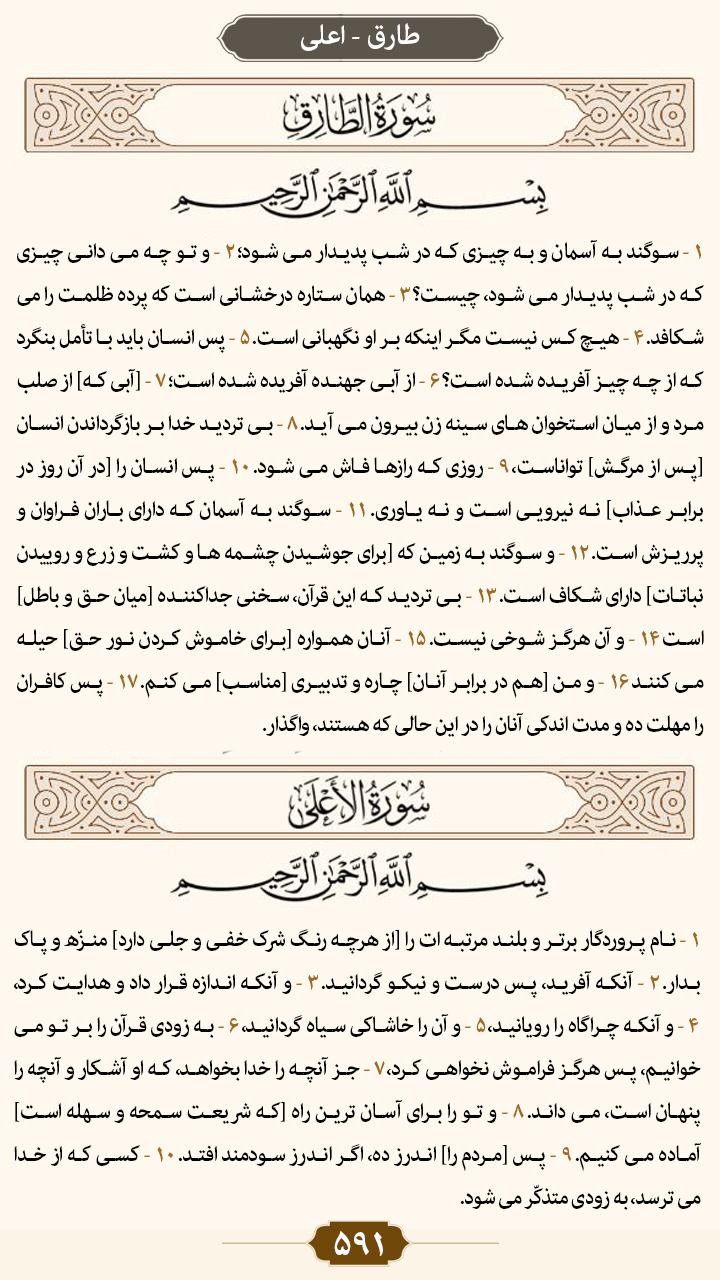 طارق - اعلی
سُورَةُ الطَّارِقِ
بِسْمِ اللَّهِ الرَّحْمَٰنِ الرَّحِيمِ
۱ - سوگند به آسمان و به چیزی که در شب پدیدار می شود؛ ۲ - و تو چه می دانی چیزی
که در شب پدیدار می شود، چیست؟ ۳ - همان ستاره درخشانی است که پرده ظلمت را می
شکافد. ۴ - هیچ کس نیست مگر اینکه بر او نگهبانی است. ۵ - پس انسان باید با تأمل بنگرد
که از چه چیز آفریده شده است؟ ۶ - از آبی جهنده آفریده شده است؛ ۷ - [آبی که] از صلب
مرد و از میان استخوان های سینه زن بیرون می آید. ۸ - بی تردید خدا بر بازگرداندن انسان
[پس از مرگش] تواناست، ۹ - روزی که رازها فاش می شود. ۱۰ - پس انسان را [در آن روز در
برابر عذاب] نه نیرویی است و نه یاوری. ۱۱ - سوگند به آسمان که دارای باران فراوان و
پرریزش است. ۱۲ - و سوگند به زمین که [برای جوشیدن چشمه ها و کشت و زرع و روییدن
نباتات] دارای شکاف است. ۱۳ - بی تردید که این قرآن، سخنی جداکننده [میان حق و باطل]
است ۱۴ - و آن هرگز شوخی نیست. ۱۵ - آنان همواره [برای خاموش کردن نور حق] حیله
می کنند ۱۶ - و من [هم در برابر آنان] چاره و تدبیری [مناسب] می کنم. ۱۷ - پس کافران
را مهلت ده و مدت اندکی آنان را در این حالی که هستند، واگذار.
سُورَةُ الأَعْلَى
بِسْمِ اللَّهِ الرَّحْمَٰنِ الرَّحِيمِ
۱ - نام پروردگار برتر و بلند مرتبه ات را [از هرچه رنگ شرک خفی و جلی دارد] منزّه و پاک
بدار. ۲ - آنکه آفرید، پس درست و نیکو گردانید. ۳ - و آنکه اندازه قرار داد و هدایت کرد،
۴ - و آنکه چراگاه را رویانید، ۵ - و آن را خاشاکی سیاه گردانید، ۶ - به زودی قرآن را بر تو می
خوانیم، پس هرگز فراموش نخواهی کرد، ۷ - جز آنچه را خدا بخواهد، که او آشکار و آنچه را
پنهان است، می داند. ۸ - و تو را برای آسان ترین راه [که شریعت سمحه و سهله است]
آماده می کنیم. ۹ - پس [مردم را] اندرز ده، اگر اندرز سودمند افتد. ۱۰ - کسی که از خدا
می ترسد، به زودی متذکّر می شود.
۵۹۱